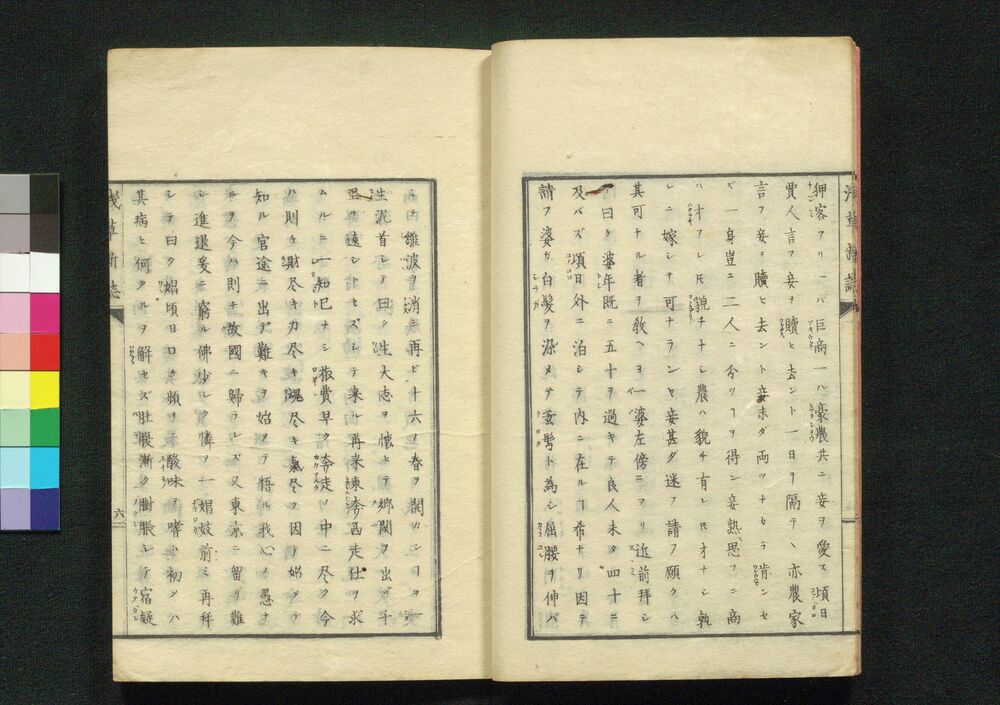 狎客フリーハ巨商一ハ豪農共ニ妾ヲ愛ス頃日
賈人言フ妾ヲ贖ヒ去ント一日ヲ隔テヽ亦農家
言フ妾ヲ贖ヒ去ント妾未ダ両ツナカラ肯ンセ
ズ一身豈ニ二人ニ分ツヿヲ得ン妾熟思フニ商
ハ才フレ𪜈貌チナシ農ハ貌チ有レ𪜈才ナシ孰
レニ嫁シテ可ナランヤ妾甚ダ迷フ請フ願クハ
其可ナル者ヲ教ヘヨ一婆左傍ニアリ近前拜シ
曰ク婆年既ニ五十ヲ過キテ良人未タ四十ニ
及バズ頃日外ニ泊シテ内ニ在ルヿ希ナリ因テ
請フ婆ガ白髪ヲ染メテ玄髩ト為シ屈腰ヲ伸バ
雄波ヲ消シ再ビ十六ノ春ヲ開カンヿヲ一
生泥首シテ曰ク生大志ヲ懐ヒテ郷関ヲ出ヅ千
里ヲ遠シトセズシテ来ル再来東奔西走仕ヲ求
ムルニ一知已ナシ旅費早ク奔徒ノ中ニ尽ク今
ハ則チ財尽キ力尽キ魂尽キ氣尽ク因テ始メテ
知ル官途ニ出デ難キヲ始メテ悟ル我心ノ愚ナ
ルヲ今ハ則チ故國ニ歸ラレズ又東京ニ留リ難
シ進退爰ニ窮ル佛少シク憐ヲ一娼妓前ミ再拜
シテ曰ク娼頃日口チ頻ヲ酸味ヲ嗜ム初クハ
其病ヒ何タルヲ解セズ肚腹漸ク樹脹シテ宿疑
六